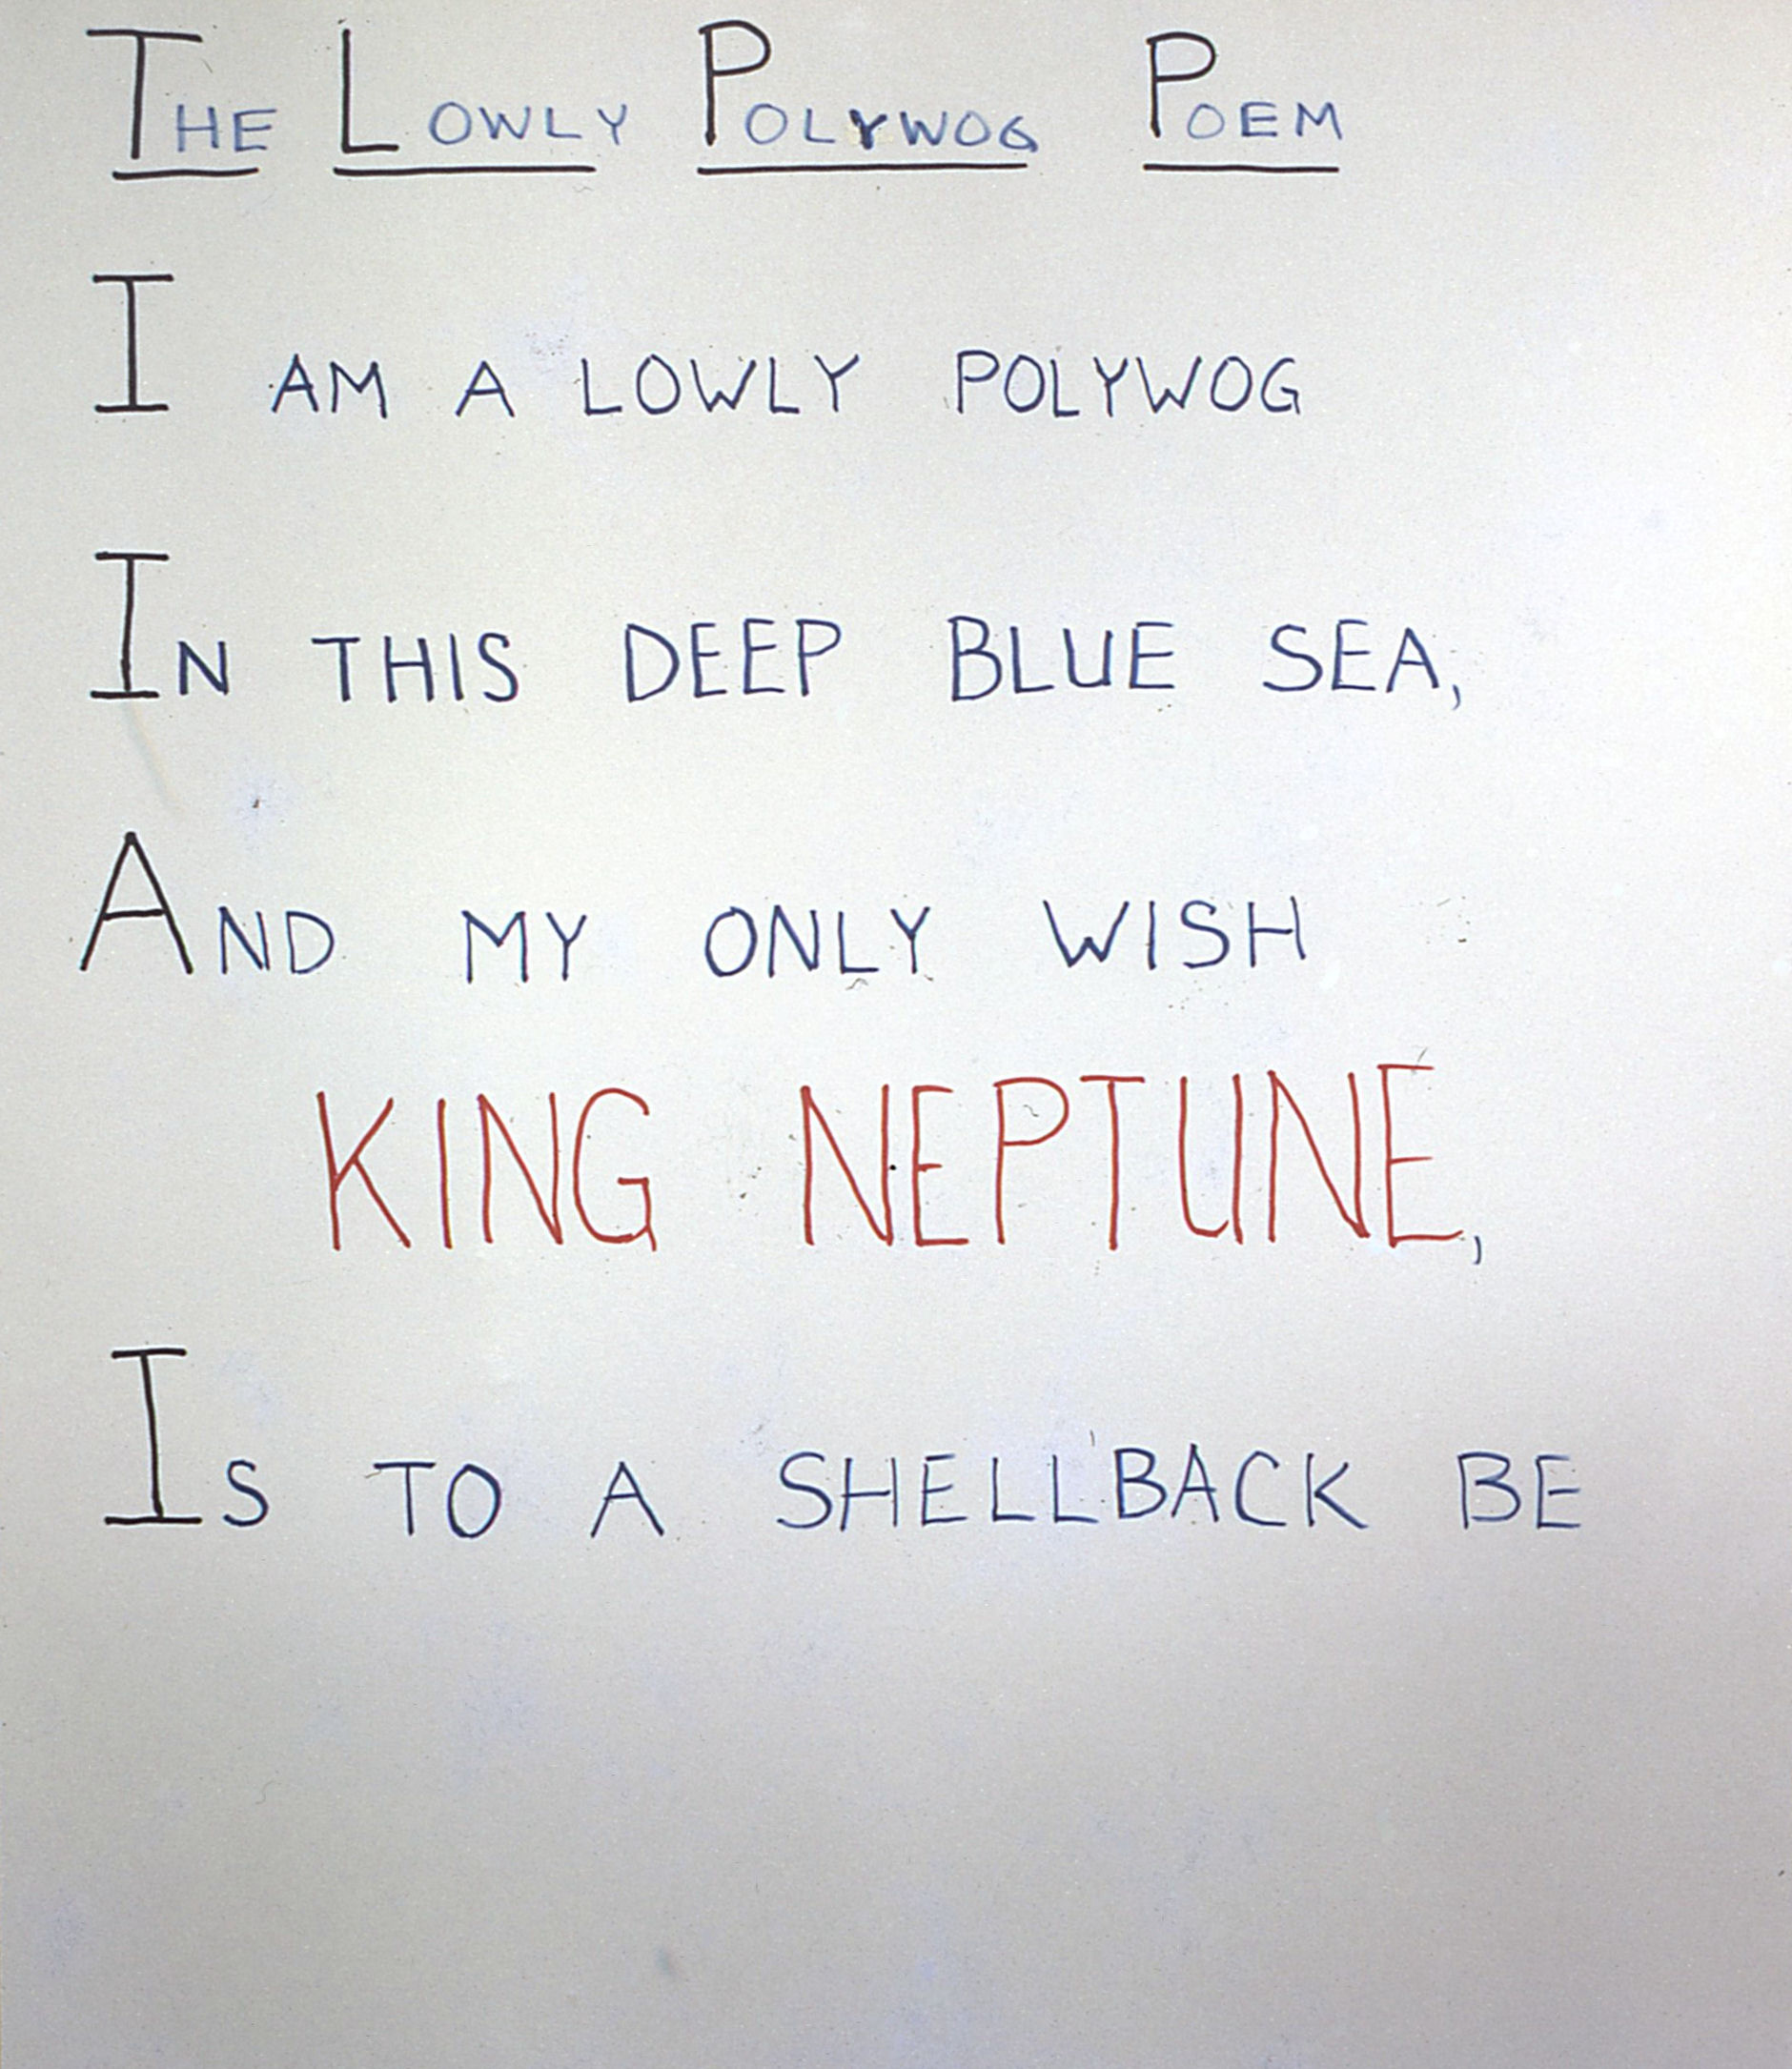 THE LOWLY POLYWOG POEM
I AM A LOWLY POLYWOG
IN THIS DEEP BLUE SEA,
AND MY ONLY WISH
KING NEPTUNE,
IS TO A SHELLBACK BE